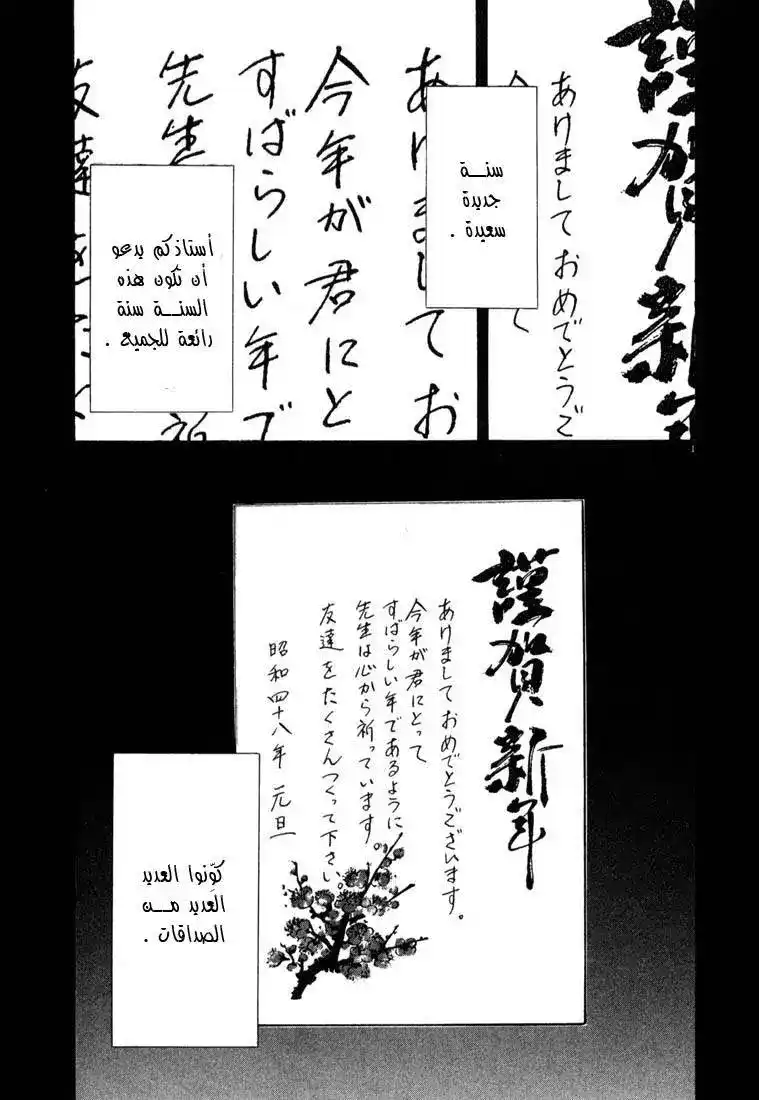 謹賀新年
あけましておめでとうご
あけましてお
今年が君にと
すばらしい年で
先生
友達
سنــة
جديدة
سعيدة .
أستاذكم يدعو
أن تكون هذه
السنــة سنة
رائعة للجميع .
謹賀新年
あけましておめでとうございます。
今年が君にとって
すばらしい年であるように
先生は心から祈っています。
友達をたくさんつくって下さい。
昭和四十八年 元旦
كوّنوا العديد
العديد مــن
الصداقات .